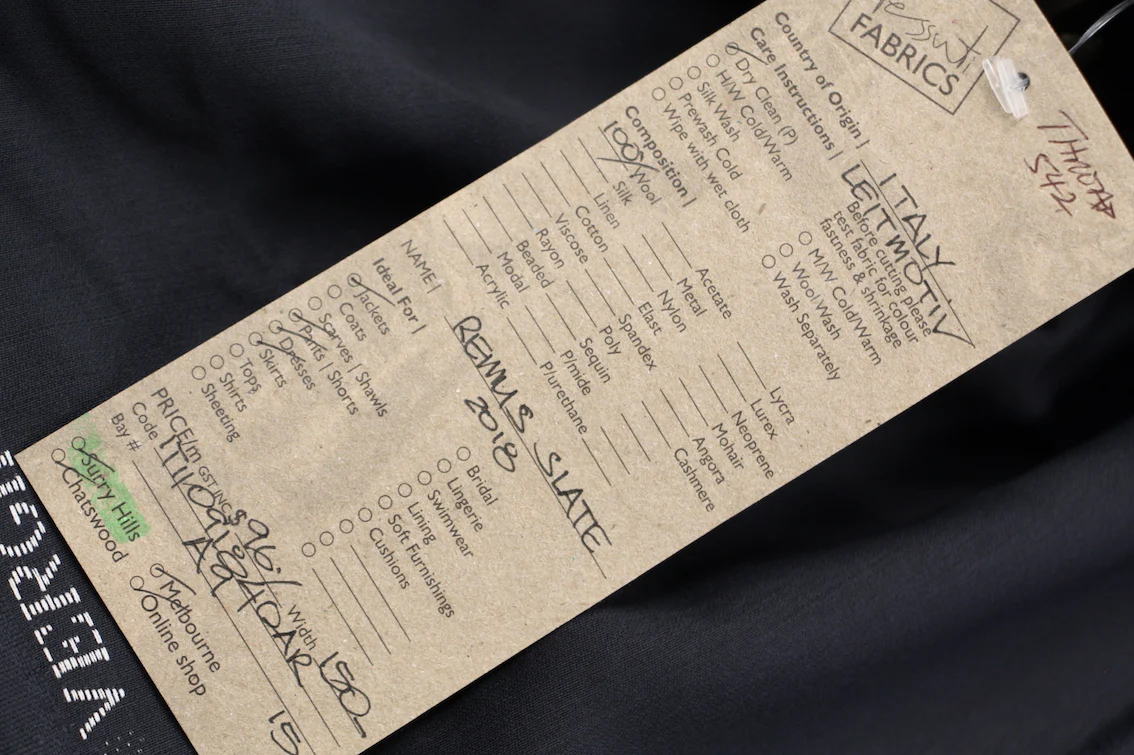 FABRICS
Country of Origin | ITALY
Care Instructions | LEITMOTIV
Dry Clean (P)
H/W Cold/Warm
Silk Wash
Prewash Cold
Wipe with wet cloth
Before cutting please
test fabric for colour
fastness & shrinkage
M/W Cold/Warm
Wool Wash
Wash Separately
Composition |
100% Wool
Silk
Linen
Cotton
Viscose
Rayon
Beaded
Modal
Acrylic
Acetate
Metal
Nylon
Elast
Spandex
Poly
Sequin
P/mide
P/urethane
Lycra
Lurex
Neoprene
Mohair
Angora
Cashmere
NAME | REMUS SLATE
2018
Ideal For |
Jackets
Coats
Scarves | Shawls
Pants | Shorts
Dresses
Skirts
Tops
Shirts
Sheeting
Bridal
Lingerie
Swimwear
Lining
Soft Furnishings
Cushions
PRICE/m GST INC $96.- Width 150
Code
Bay # 15
Surry Hills
Chatswood
Melbourne
Online shop
542